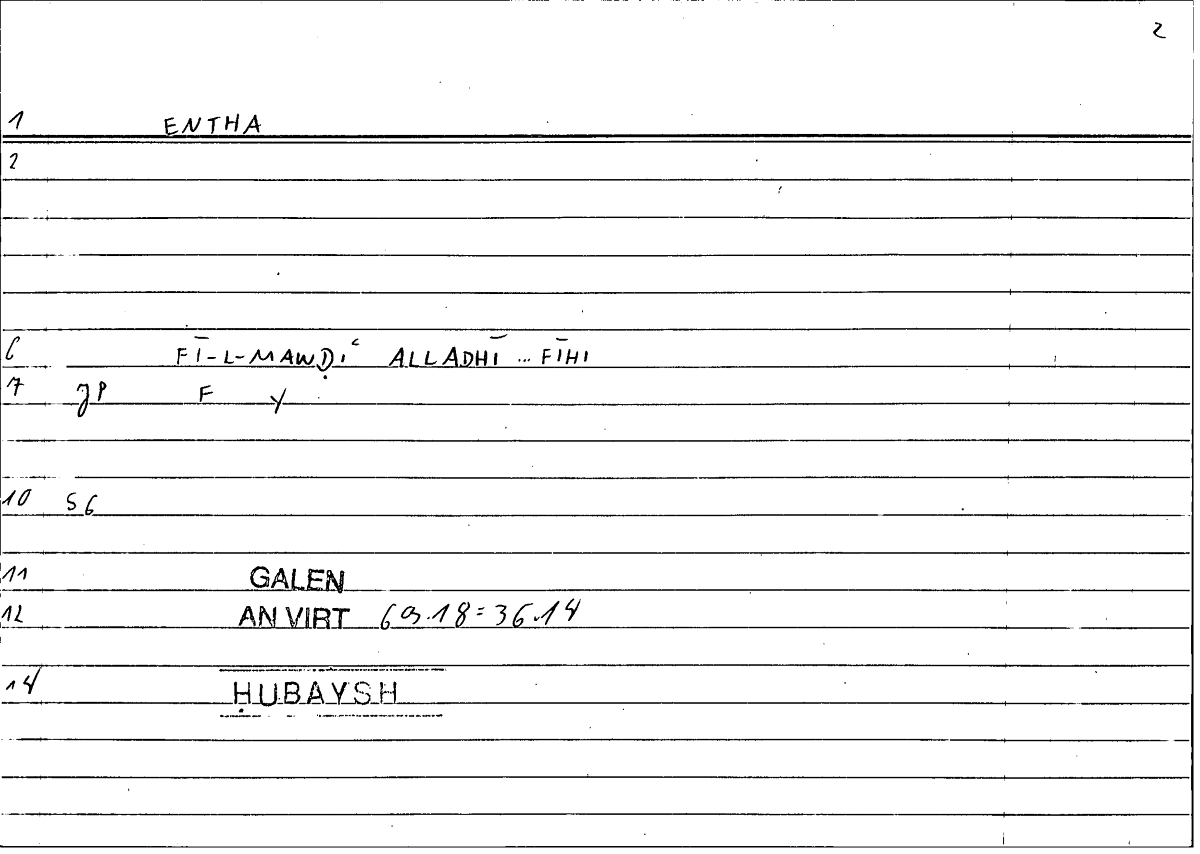 2
1 ENTHA
2
6 FĪ-L-MAWḌIʿ ALLADHĪ ... FĪHI
7 JP F Y
10 SG
11 GALEN
12 AN VIRT 69.18=36.14
14 ḤUBAYSH